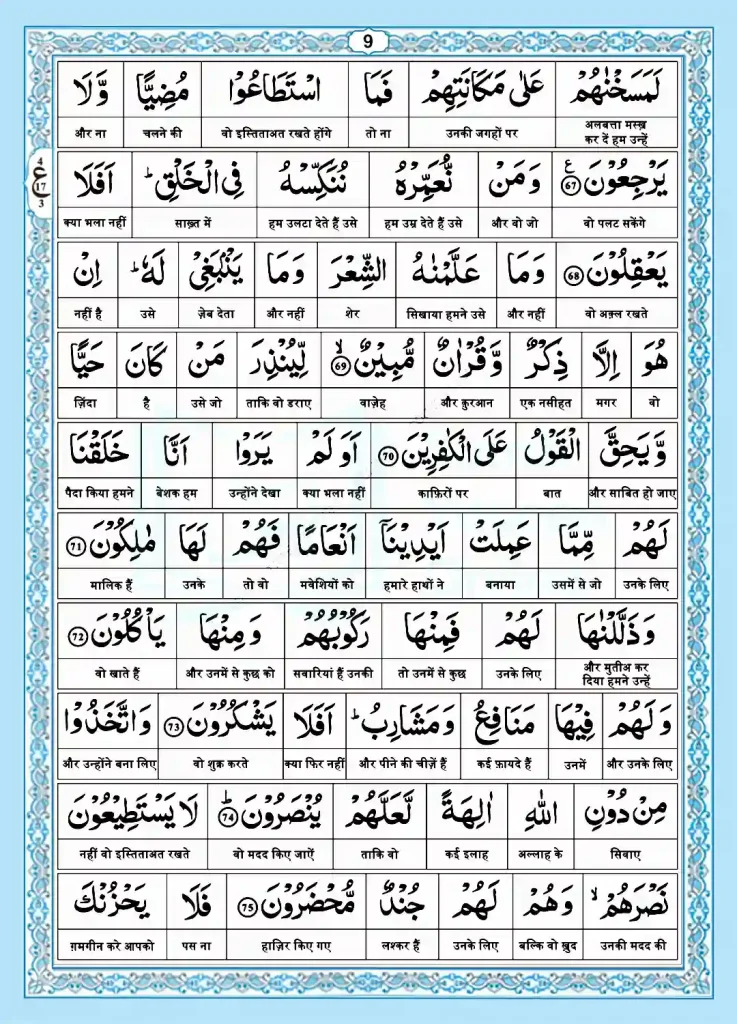 9
لَمَسَخْنٰهُمْ عَلٰى مَكَانَتِهِمْ فَمَا اسْتَطَاعُوْا مُضِيًّا وَّلَا
अलबत्ता मस्ख़ कर दें हम उन्हें उनकी जगहों पर तो ना वो इस्तिताअत रखते होंगे चलने की और ना
يَرْجِعُوْنَ ع 67 وَمَنْ نُّعَمِّرْهُ نُنَكِّسْهُ فِى الْخَلْقِ ؕ اَفَلَا
वो पलट सकेंगे और वो जो हम उम्र देते हैं उसे हम उलटा देते हैं उसे साख़्त में क्या भला नहीं
4
ع
17
3
يَعْقِلُوْنَ 68 وَمَا عَلَّمْنٰهُ الشِّعْرَ وَمَا يَنْۢبَغِىْ لَهٗ ؕ اِنْ
वो अक़्ल रखते और नहीं सिखाया हमने उसे शेर और नहीं ज़ेब देता उसे नहीं है
هُوَ اِلَّا ذِكْرٌ وَّقُرْاٰنٌ مُّبِيْنٌ ۙ 69 لِّيُنْذِرَ مَنْ كَانَ حَيًّا
वो मगर एक नसीहत और क़ुरआन वाज़ेह ताकि वो डराए उसे जो है ज़िंदा
وَّيَحِقَّ الْقَوْلُ عَلَى الْكٰفِرِيْنَ 70 اَوَلَمْ يَرَوْا اَنَّا خَلَقْنَا
और साबित हो जाए बात काफ़िरों पर क्या भला नहीं उन्होंने देखा बेशक हम पैदा किया हमने
لَهُمْ مِّمَّا عَمِلَتْ اَيْدِيْنَاۤ اَنْعَامًا فَهُمْ لَهَا مٰلِكُوْنَ 71
उनके लिए उसमें से जो बनाया हमारे हाथों ने मवेशियों को तो वो उनके मालिक हैं
وَذَلَّلْنٰهَا لَهُمْ فَمِنْهَا رَكُوْبُهُمْ وَمِنْهَا يَاْكُلُوْنَ 72
और मुतीअ कर दिया हमने उन्हें उनके लिए तो उनमें से कुछ सवारियां हैं उनकी और उनमें से कुछ को वो खाते हैं
وَلَهُمْ فِيْهَا مَنَافِعُ وَمَشَارِبُ ؕ اَفَلَا يَشْكُرُوْنَ 73 وَاتَّخَذُوْا
और उनके लिए उनमें कई फ़ायदे हैं और पीने की चीज़ें हैं क्या फिर नहीं वो शुक्र करते और उन्होंने बना लिए
مِنْ دُوْنِ اللّٰهِ اٰلِهَةً لَّعَلَّهُمْ يُنْصَرُوْنَ ؕ 74 لَا يَسْتَطِيْعُوْنَ
सिवाए अल्लाह के कई इलाह ताकि वो वो मदद किए जाऐं नहीं वो इस्तिताअत रखते
نَصْرَهُمْ ۙ وَهُمْ لَهُمْ جُنْدٌ مُّحْضَرُوْنَ 75 فَلَا يَحْزُنْكَ
उनकी मदद की बल्कि वो ख़ुद उनके लिए लश्कर हैं हाज़िर किए गए पस ना ग़मगीन करे आपको